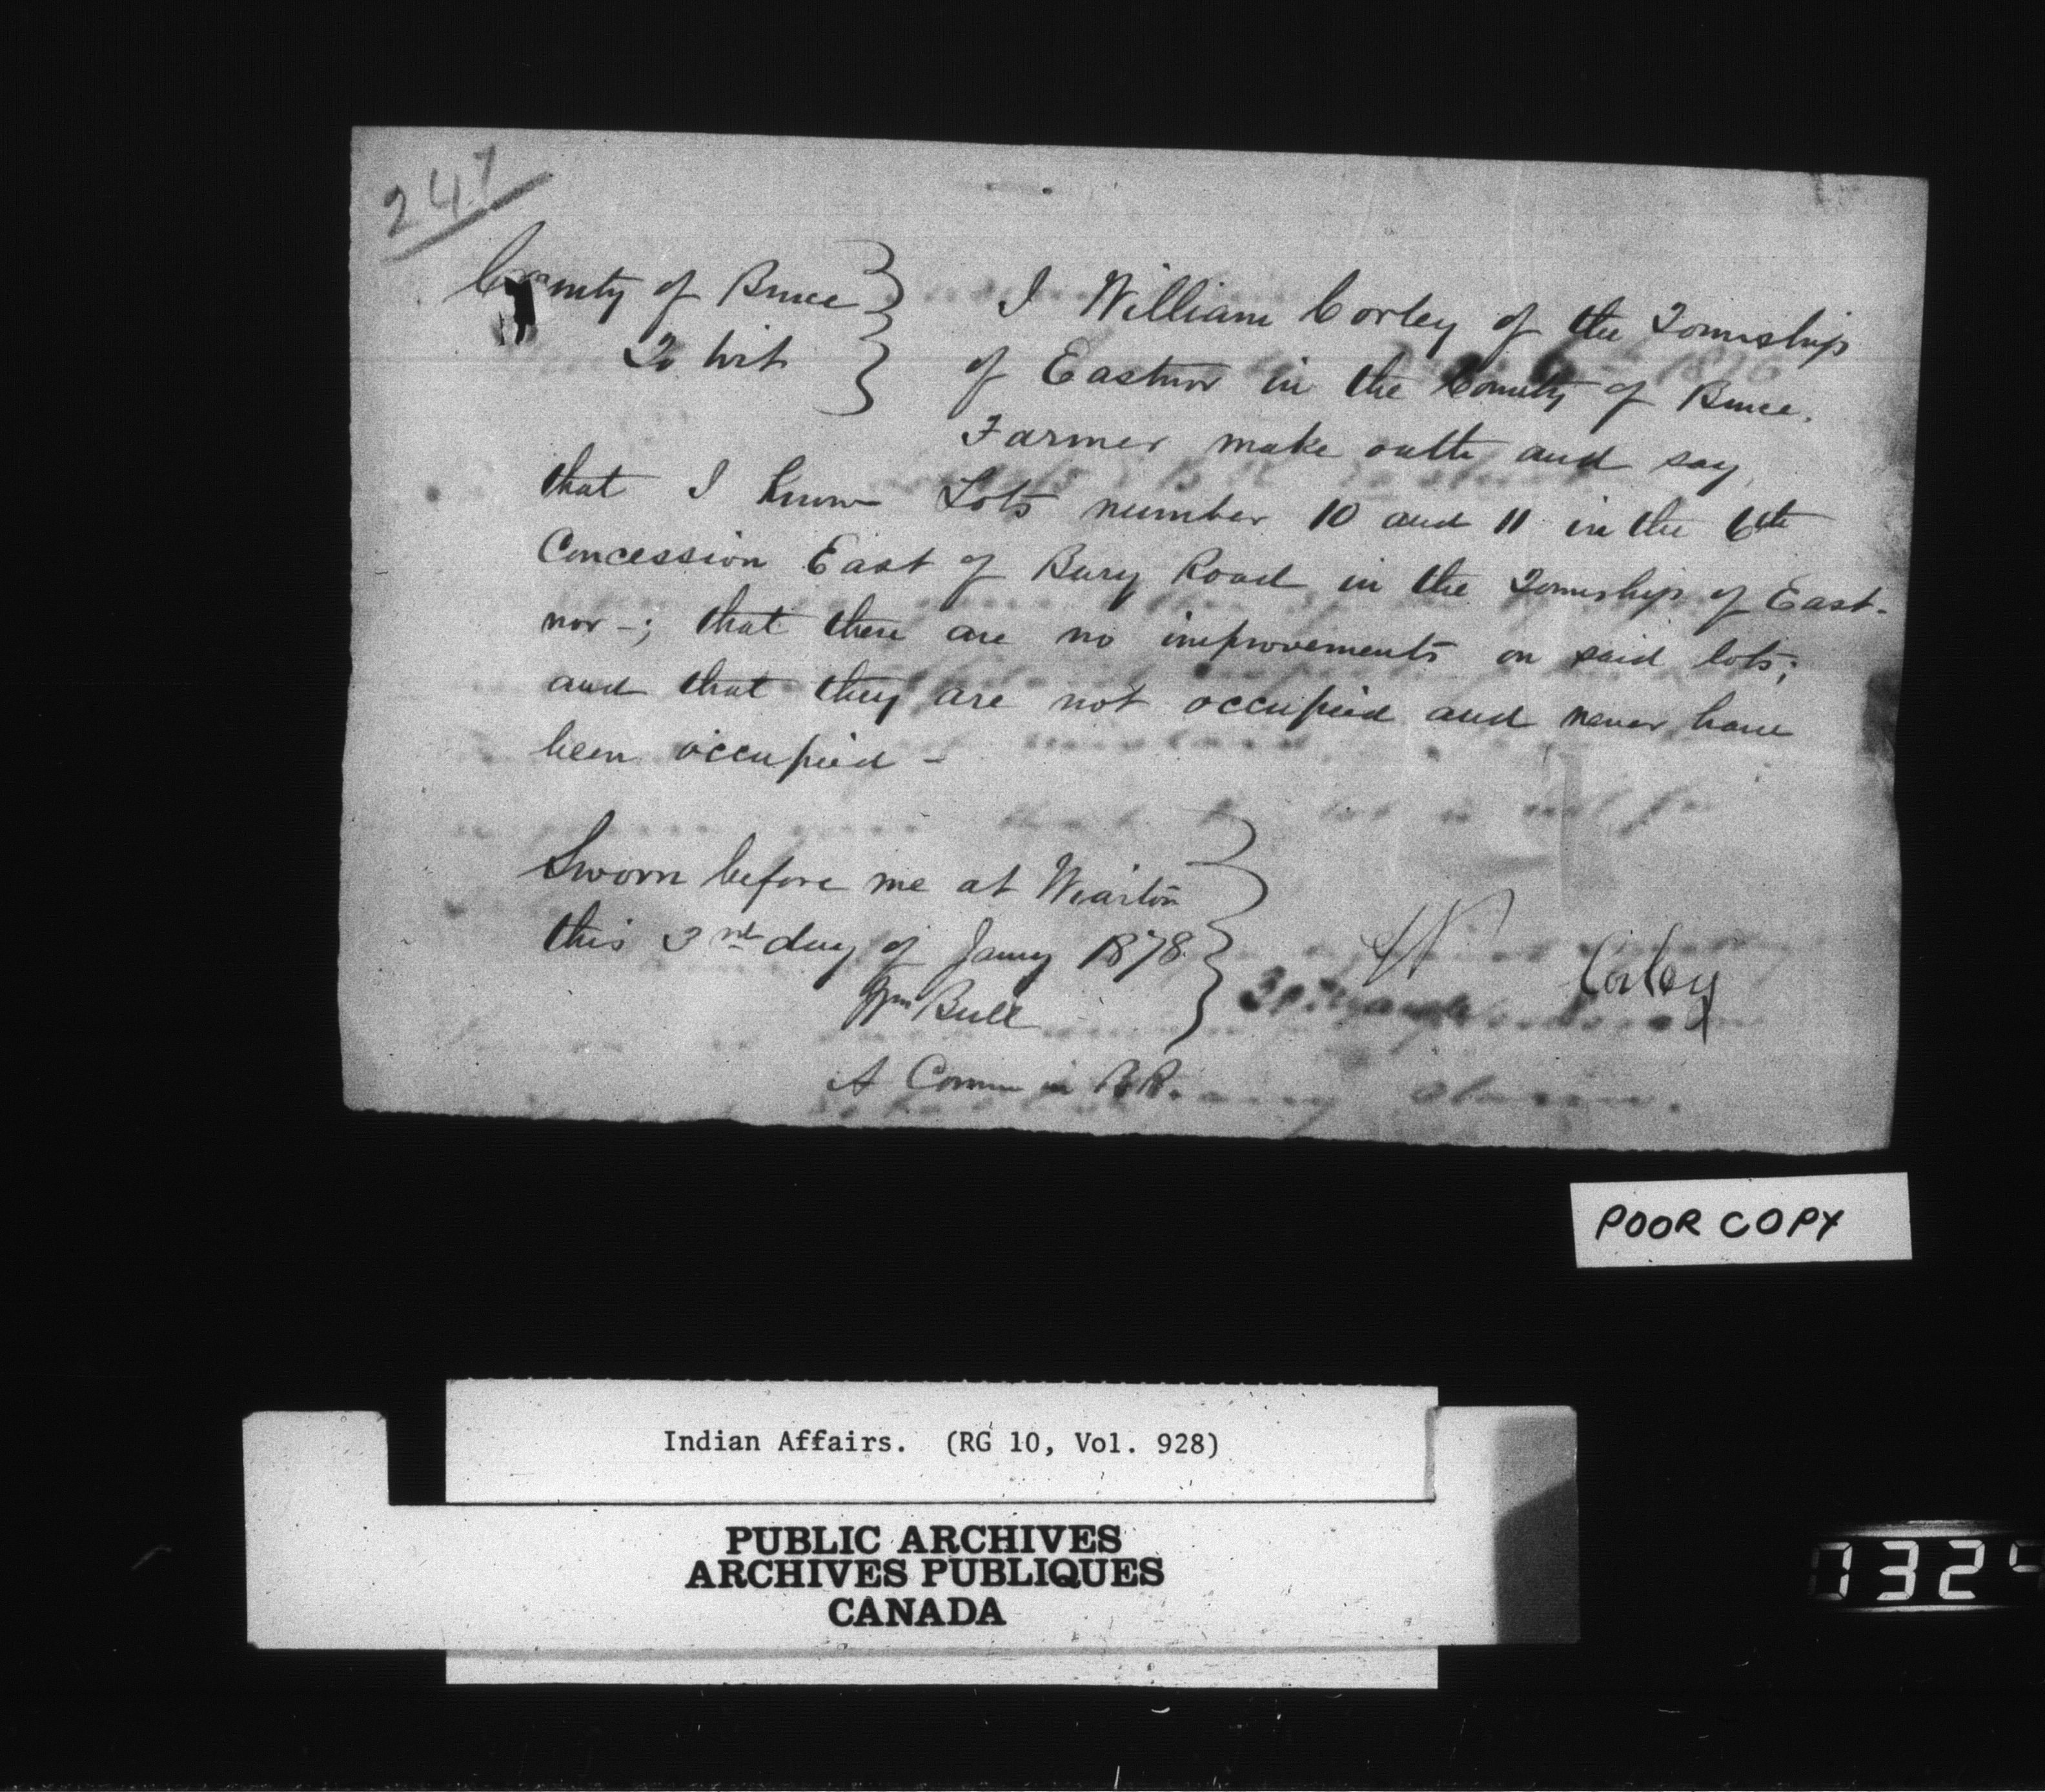 247
County of Bruce
To Wit
I William Corley of the Township
of Eastnor in the County of Bruce.
Farmer make oath and say,
that I know Lots number 10 and 11 in the 6th
Concession East of Bury Road in the Township of East-
nor -; that there are no improvements on said lots;
and that they are not occupied and never have
been occupied -
Sworn before me at Wiarton
this 3rd day of Jany 1878.
Wm Bull
A Comm in B.R.
W Corley
POOR COPY
Indian Affairs. (RG 10, Vol. 928)
PUBLIC ARCHIVES
ARCHIVES PUBLIQUES
CANADA